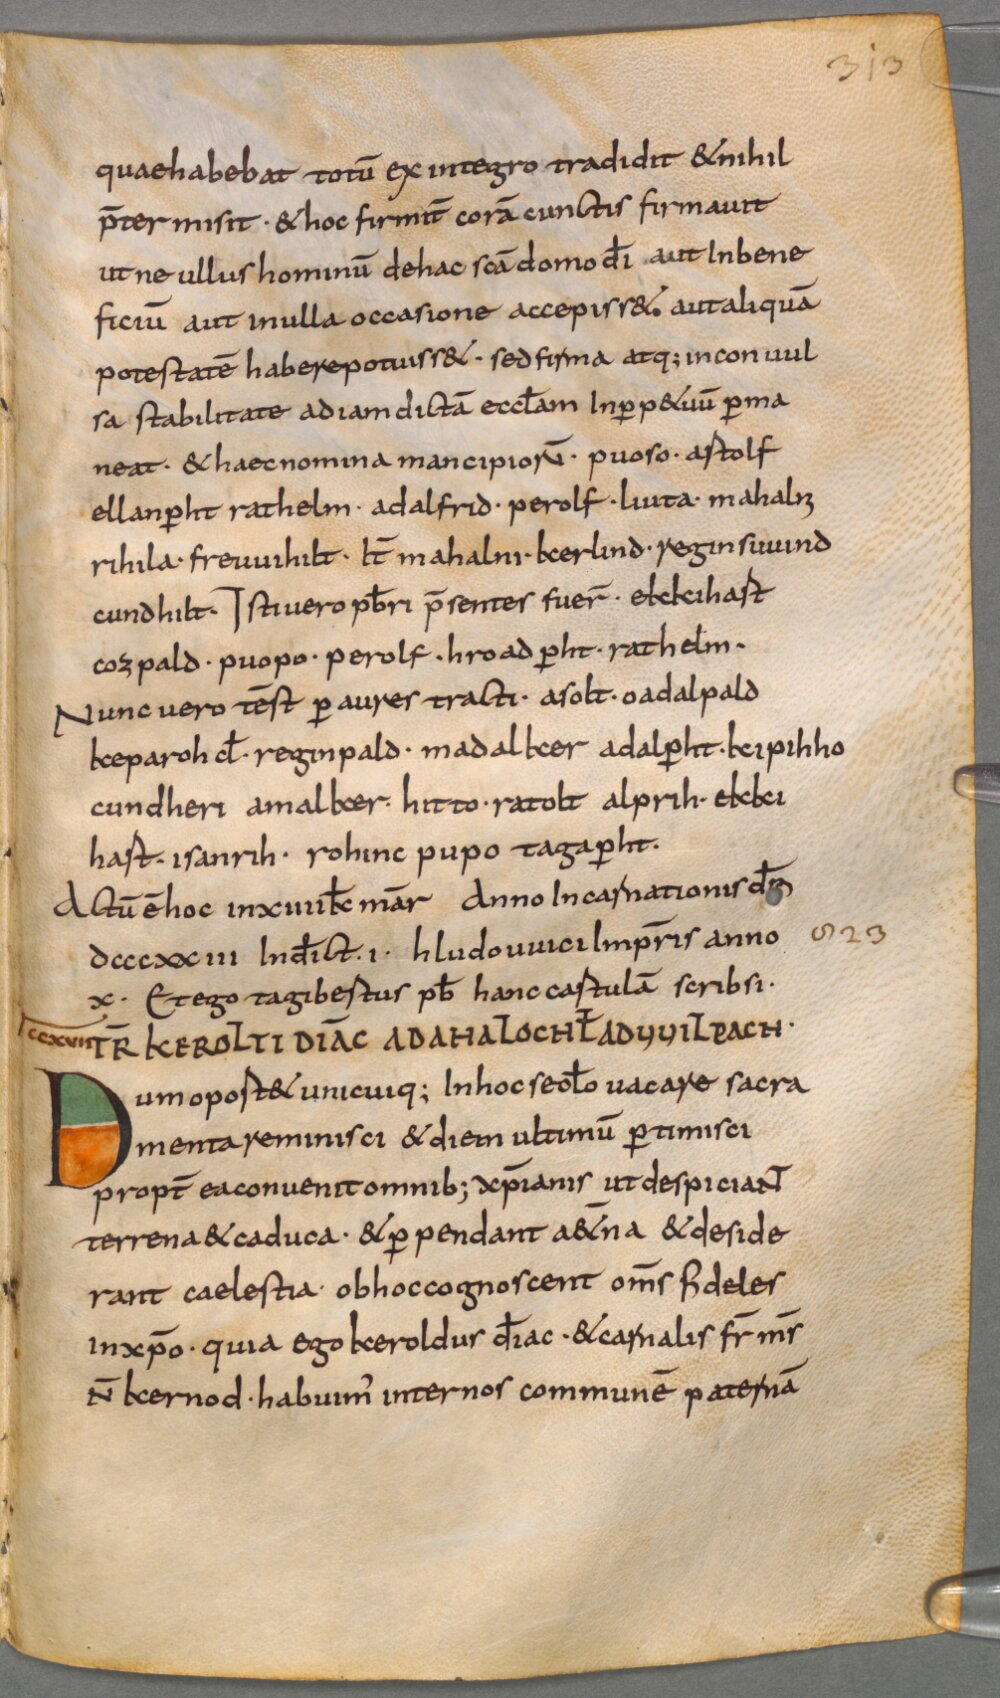 313
quaehabebat totū ex integro tradidit &nihil
p̄ter misit · &hoc firmit̄ corā cunctis firmauit
ut ne ullus hominū dehac scā domo dī aut Inbene
ficiū aut inulla occasione accepiss&. aut aliquā
potestatē haberepotuiss& · sed firma atq; inconuul
sa stabilitate ad iam dictā eccłam Inꝑp&uū ꝑma
neat · & haec nomina mancipiorū · puoso · astolf
ellanꝑht rathelm · adalfrid · perolf · liuta · mahalni
rihila · freuuihilt · It̄ mahalni · kerlind · reginsuuind
cundhilt · Isti uero pb̄ri p̄sentes fuer̄ · ekkihast
cozpald · puopo · perolf · hroadꝑht · rathelm ·
Nunc uero tēst ꝑ aures tracti · asolt · oadalpald
keparoh cł · reginpald · madalker adalꝑht · kipihho
cundheri amalker · hitto · ratolt alprih · ekki
hast · isanrih · rohinc pupo tagaꝑht ·
Actū ē hoc inxuiik̄ mār Anno Incarnationis dn̄i
dcccxxiii Indict̄ · i · hludouuici Impr̄is anno 823
x · Et ego tagibestus pb̄ hanc castulā scribsi ·
ccxvii TR̄ KEROLTI DIĀC ADAHALOCHI ET AD UUILPACH ·
Dum opost& unicuiq; Inhoc secło uacare sacra
menta reminisci &diem ultimū ꝑtimisci
propt̄ ea conuenit omnib; xp̄ianis ut despiciant
terrena &caduca · &ꝑpendant a&̄na &deside
rant caelestia · obhoc cognoscent om̄s fideles
inxp̄o · quia ego keroldus diac̄ · &carnalis fr̄ m̄s
n̄ kernod · habuim' internos communē paternā